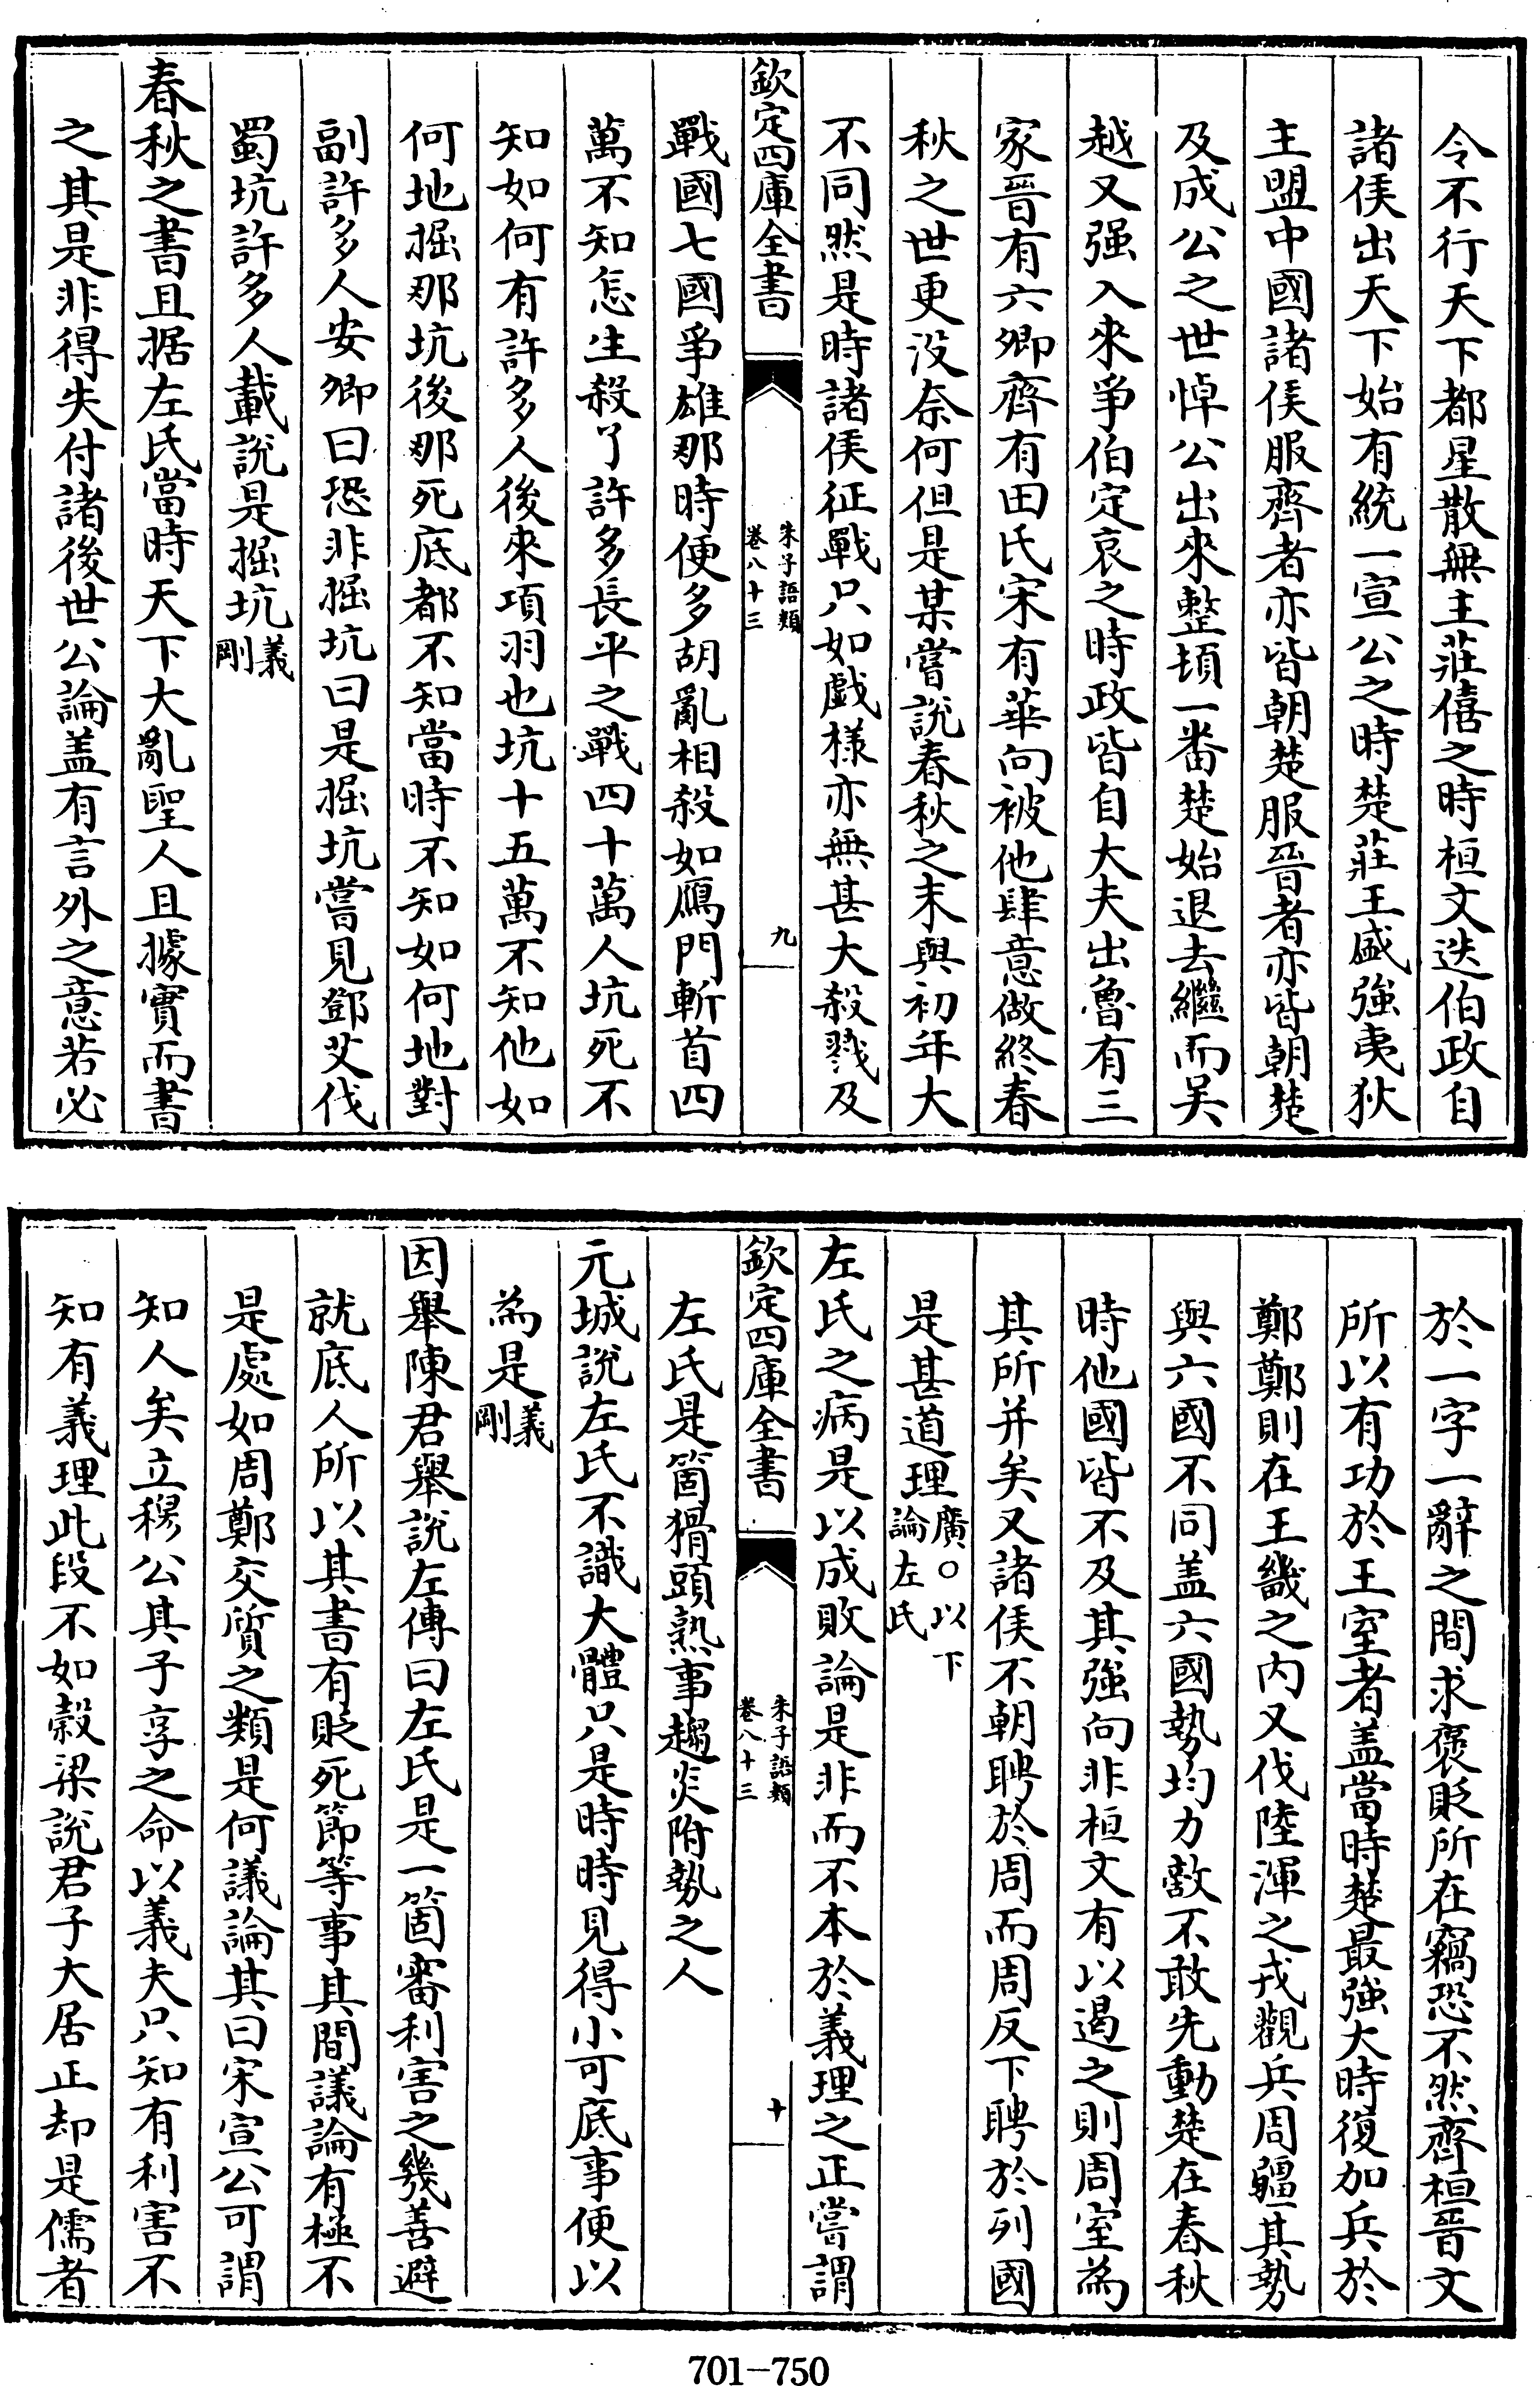 令不行天下都星散無主莊僖之時桓文迭伯政自
諸侯出天下始有統一宣公之時楚莊王盛強夷狄
主盟中國諸侯服齊者亦皆朝楚服晉者亦皆朝楚
及成公之世悼公出來整頓一番楚始退去繼而吳
越又强入來爭伯定哀之時政皆自大夫出魯有三
家晉有六卿齊有田氏宋有華向被他肆意做終春
秋之世更没奈何但是某嘗說春秋之末與初年大
不同然是時諸侯征戰只如戯様亦無甚大殺戮及
欽定四庫全書
朱子語類
卷八十三
九
戰國七國爭雄那時便多胡亂相殺如鴈門斬首四
萬不知怎生殺了許多長平之戰四十萬人坑死不
知如何有許多人後來項羽也坑十五萬不知他如
何地掘那坑後那死底都不知當時不知如何地對
副許多人安卿曰恐非掘坑曰是掘坑嘗見鄧艾伐
蜀坑許多人載說是掘坑義剛
春秋之書且据左氏當時天下大亂聖人且據實而書
之其是非得失付諸後世公論盖有言外之意若必
於一字一辭之間求褒貶所在竊恐不然齊桓晉文
所以有功於王室者盖當時楚最强大時復加兵於
鄭鄭則在王畿之内又伐陸渾之戎觀兵周疆其勢
與六國不同盖六國勢均力敵不敢先動楚在春秋
時他國皆不及其強向非桓文有以遏之則周室為
其所并矣又諸侯不朝聘於周而周反下聘於列國
是甚道理廣○以下論左氏
左氏之病是以成敗論是非而不本於義理之正嘗謂
欽定四庫全書
朱子語類
卷八十三
十
左氏是箇猾頭熟事趨炎附勢之人
元城說左氏不識大體只是時時見得小可底事便以
為是義剛
因舉陳君舉說左傳曰左氏是一箇審利害之幾善避
就底人所以其書有貶死節等事其間議論有極不
是處如周鄭交質之類是何議論其曰宋宣公可謂
知人矣立穆公其子享之命以義夫只知有利害不
知有義理此段不如穀梁說君子大居正却是儒者
701-750